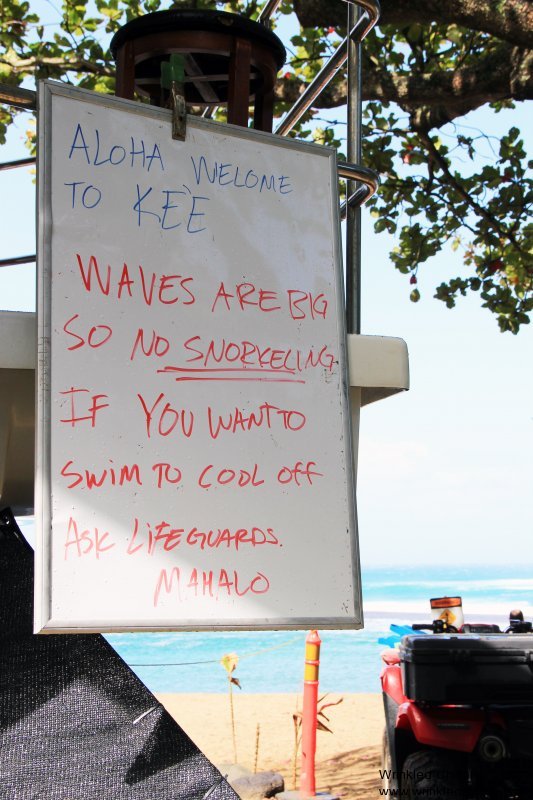 ALOHA WELOME
TO KE'E
WAVES ARE BIG
SO NO SNORKELING
IF YOU WANT TO
SWIM TO COOL OFF
ASK LIFEGUARDS.
MAHALO
Wrinkled
www.wrinkled